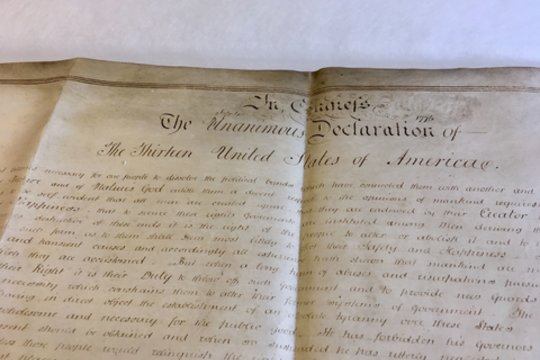 In Congress July 4 1776
The Unanimous Declaration of
The Thirteen United States of America.
necessary for one people to dissolve the political bands which have connected them with another and
and of Natures God entitle them a decent respect to the opinions of mankind requires
to be self evident that all men are created equal that they are endowed by their Creator
Happiness that to secure these rights governments are instituted among Men deriving
destructive of these ends it is the right of the people to alter or abolish it and to
such form as to them shall seem most likely to effect their Safety and Happiness
and transient causes and accordingly all experience hath shewn that mankind are
they are accustomed But when a long train of abuses and usurpations
their Right it is their Duty to throw off such government and to provide new guards
necessity which constrains them to alter their former systems of government The
having in direct object the establishment of an absolute tyranny over these States
wholesome and necessary for the public good He has forbidden his governors
should be obtained and when so suspended he has utterly
those people would relinquish the